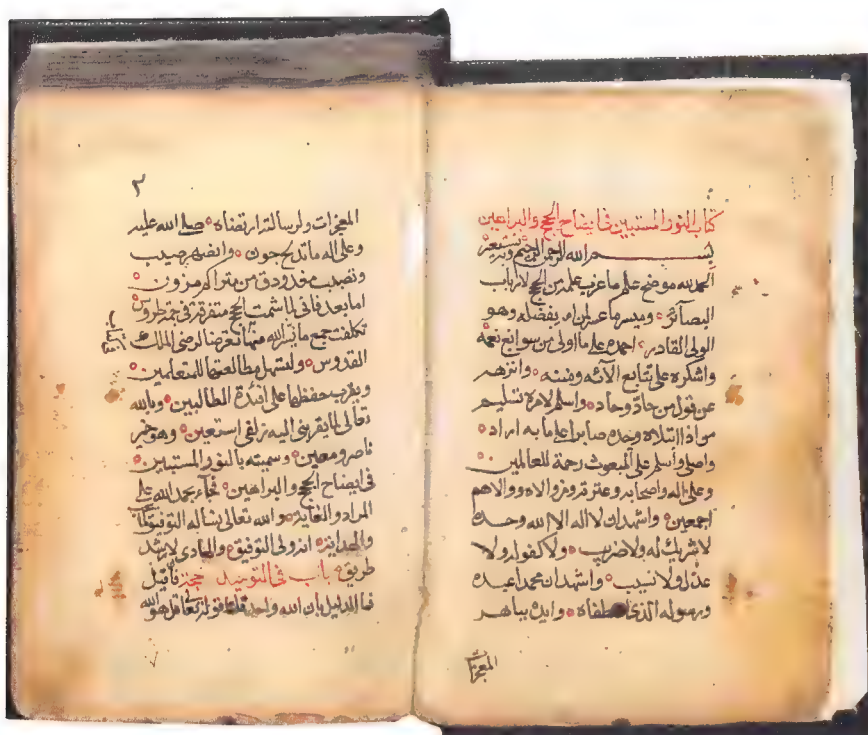 كتاب النور المستبين في ايضاح الحجج والبراهين
بسم الله الرحمن الرحيم وبه نستعين
الحمد لله موضح علم ما عزب علمه من الحجج لارباب
البصآئر وميسر ما عسر لمن امه بفضله وهو
الولي القادر احمده على ما اولى من سوابغ نعمه
واشكره على تتابع الآئه ومننه وانزهه
عن قول من حاد وحاد واسلم لامره تسليم
من اذا ابتلاه وجده صابرا على ما به اراد
واصلي واسلم على المبعوث رحمة للعالمين
وعلى اله واصحابه وعترته ومن والاه ووالاهم
اجمعين واشهد ان لا اله الا الله وحده
لا شريك له ولا ضريب ولا كفو له ولا
عديل ولا نسيب واشهد ان محمدا عبده
ورسوله الذي اصطفاه وايده بباهر
المعجزات
٢
المعجزات ولرسالته ارتضاه صلى الله عليه
وعلى اله ما تدلج جون وانضهر صيب
ونصب مخدودق من متراكم مزون
اما بعد فاني لما شمت الحجج متفرقة في طروس
تكلفت جمع ما يسر الله منها تعرضا لرضى الملك
القدوس وليسهل مطالعتها للمتعلمين
ويقرب حفظها على افئدة الطالبين وبالله
تعالى لما يقربني اليه زلفى استعين وهو خير
ناصر ومعين وسميته بالنور المستبين
في ايضاح الحجج والبراهين فجآء بحمد الله على
المراد والغاية والله تعالى نسأله التوفيق
والهداية انه ولي التوفيق والهادي لارشد
طريق باب في التوحيد حجة فان قيل
فما الدليل بان الله واحد قلنا قوله تعالى قل هو الله